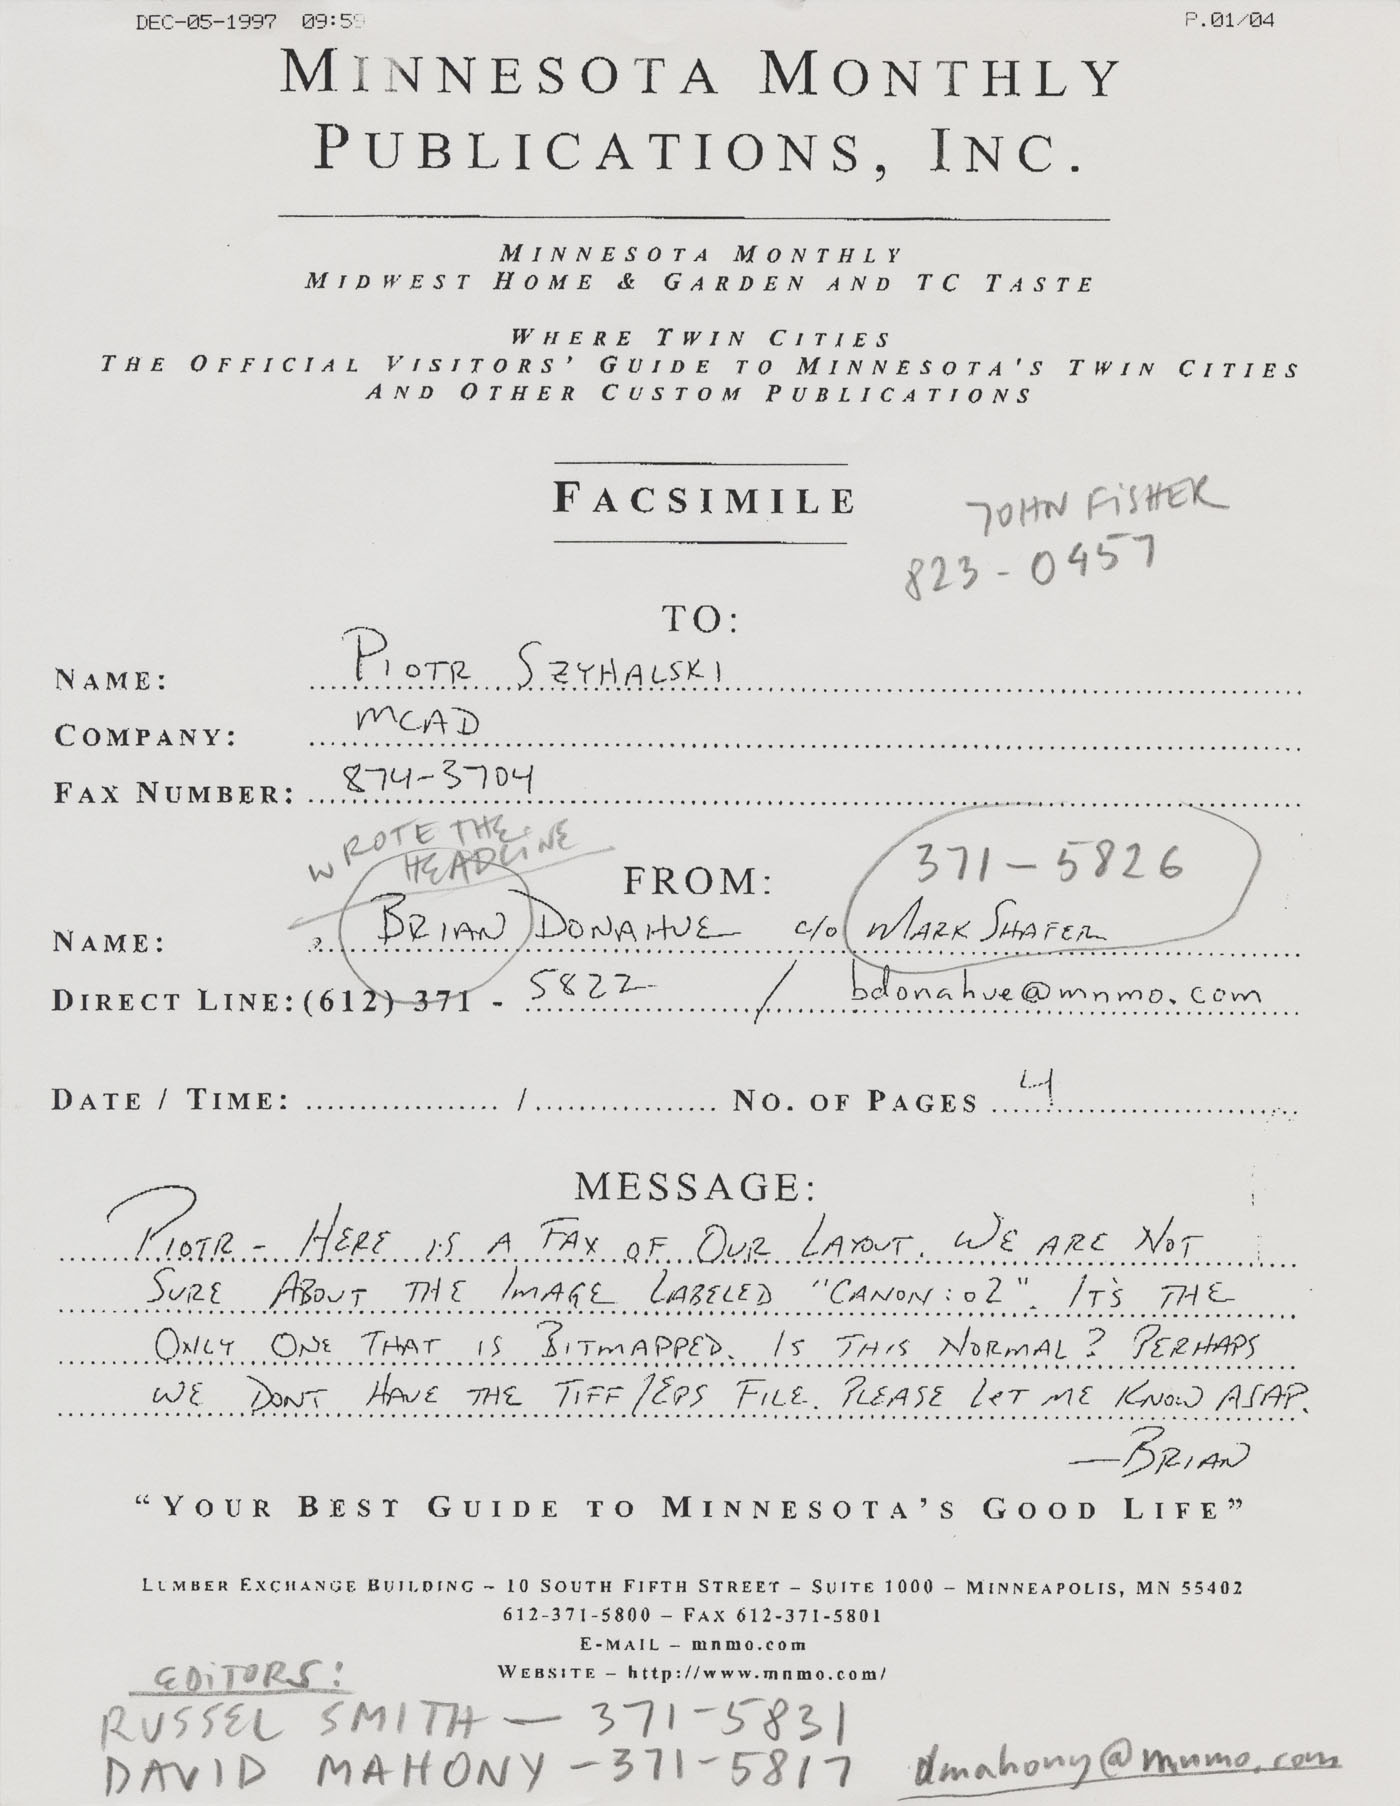 DEC-05-1997 09:59 P.01/04
MINNESOTA MONTHLY
PUBLICATIONS, INC.
MINNESOTA MONTHLY
MIDWEST HOME & GARDEN AND TC TASTE
WHERE TWIN CITIES
THE OFFICIAL VISITORS' GUIDE TO MINNESOTA'S TWIN CITIES
AND OTHER CUSTOM PUBLICATIONS
FACSIMILE
JOHN FISHER
823-0457
TO:
NAME: PIOTR SZYHALSKI
COMPANY: MCAD
FAX NUMBER: 874-3704
WROTE THE
HEADLINE
FROM:
371-5826
NAME: BRIAN DONAHUE c/o MARK SHAFER
DIRECT LINE: (612) 371 - 5822 / bdonahue@mnmo.com
DATE / TIME: / NO. OF PAGES 4
MESSAGE:
PIOTR - HERE IS A FAX OF OUR LAYOUT. WE ARE NOT
SURE ABOUT THE IMAGE LABELED "CANON:02". IT'S THE
ONLY ONE THAT IS BITMAPPED. IS THIS NORMAL? PERHAPS
WE DONT HAVE THE TIFF/EPS FILE. PLEASE LET ME KNOW ASAP.
—BRIAN
"YOUR BEST GUIDE TO MINNESOTA'S GOOD LIFE"
LUMBER EXCHANGE BUILDING – 10 SOUTH FIFTH STREET – SUITE 1000 – MINNEAPOLIS, MN 55402
612-371-5800 – FAX 612-371-5801
E-MAIL – mnmo.com
WEBSITE – http://www.mnmo.com/
EDITORS:
RUSSEL SMITH — 371-5831
DAVID MAHONY - 371-5817 dmahony@mnmo.com